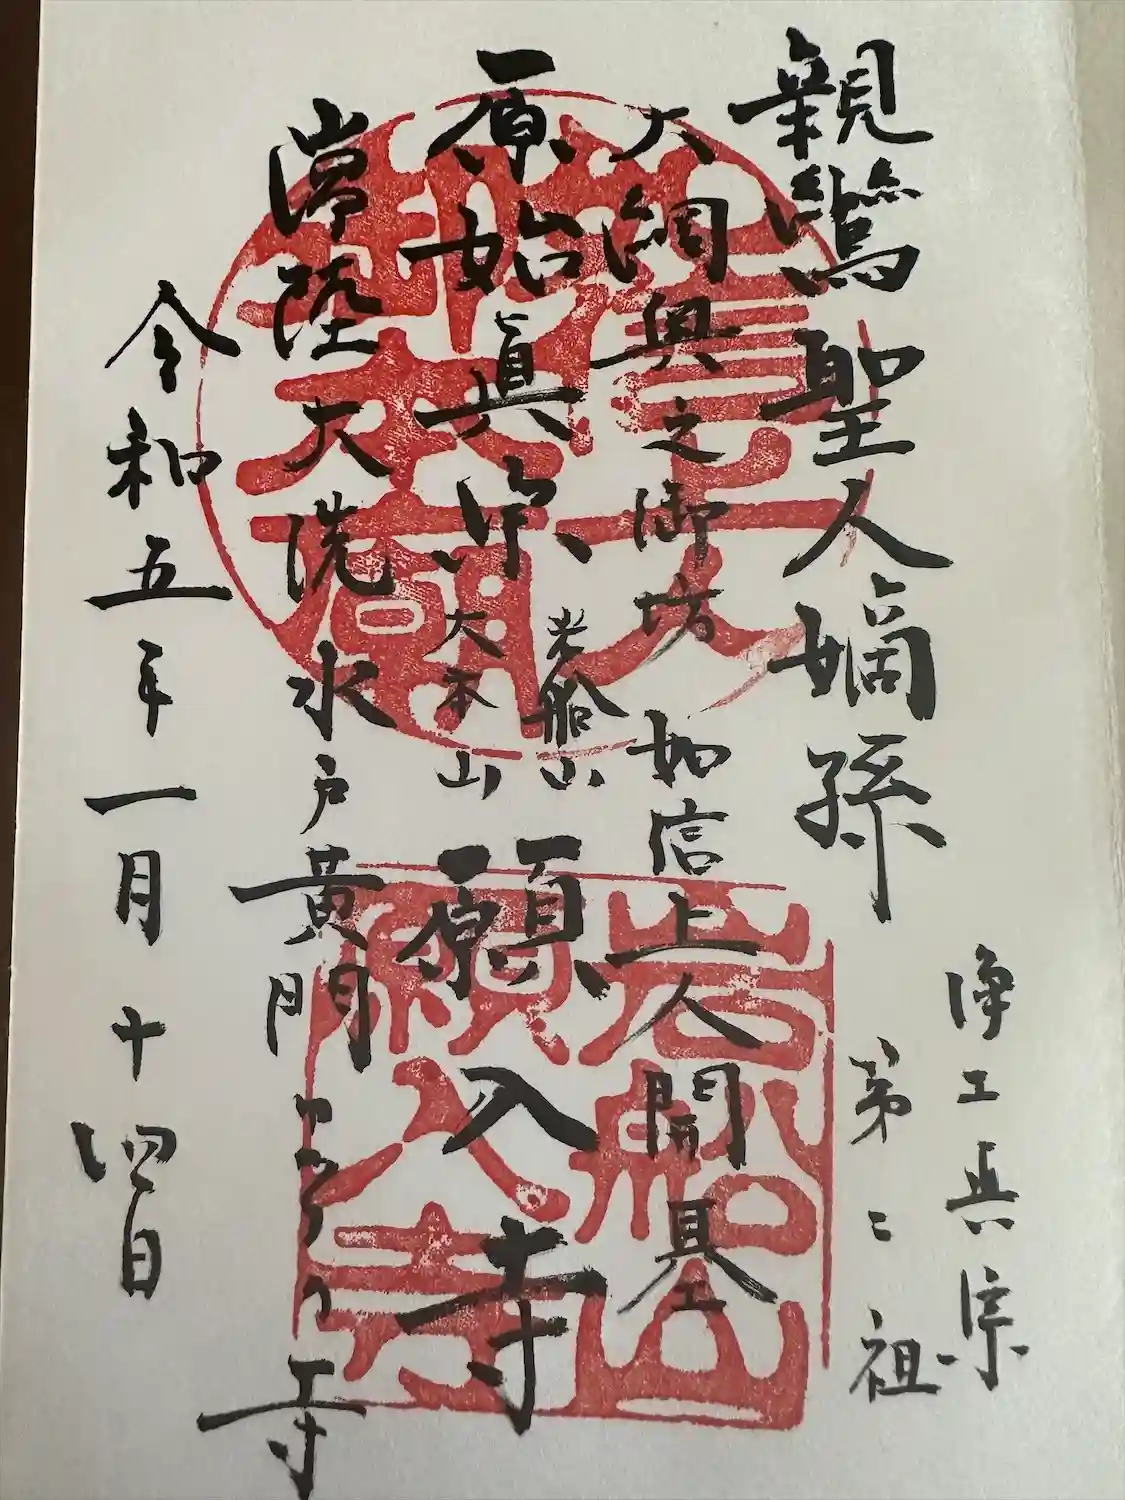 親鸞聖人嫡孫
浄土真宗
第二祖
大網奥之御坊 如信上人開基
原始眞宗
岩船山
大本山
願入寺
常陸大洗水戸黄門ゆかりの寺
令和五年一月十四日
岩船山
願入寺